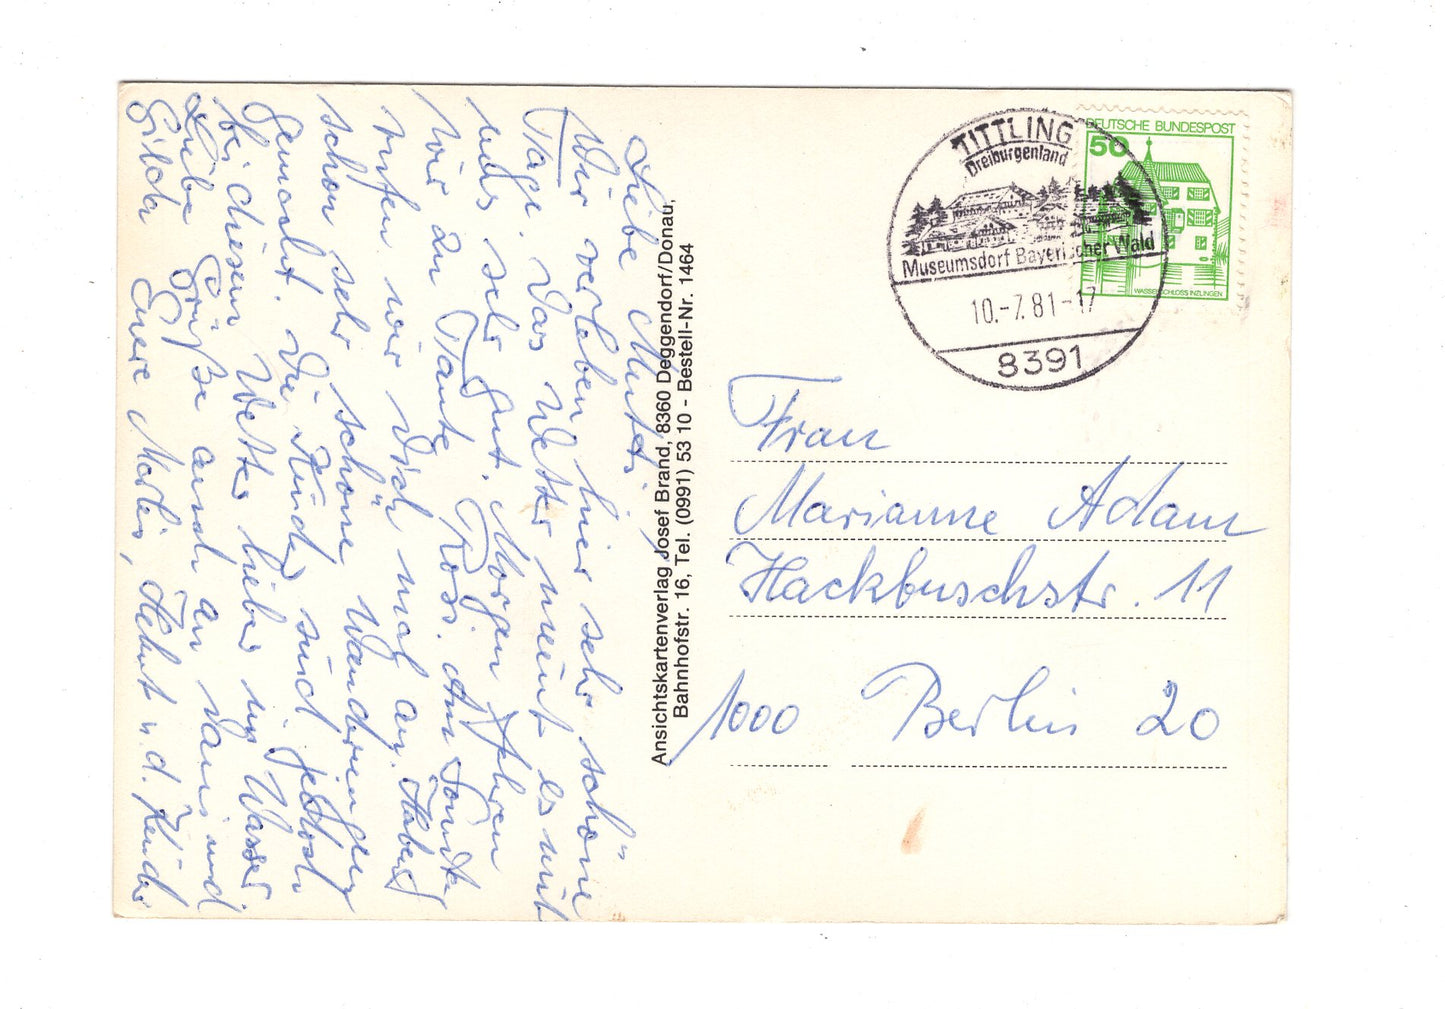 Liebe Mutti,
Wir verleben hier sehr schöne
Tage. Das Wetter meint es mit
uns sehr gut. Morgen fahren
wir zu Tante Rosi. Am Sonntag
rufen wir Dich mal an. Haben
schon sehr schöne Wanderungen
gemacht. Die Kinder sind jedoch
bei diesem Wetter lieber im Wasser
Liebe Grüße auch an und
Eure n. d. Kinder
Ansichtskartenverlag Josef Brand, 8360 Deggendorf/Donau,
Bahnhofstr. 16, Tel. (0991) 53 10 - Bestell-Nr. 1464
TITTLING
Dreiburgenland
Museumsdorf Bayerischer Wald
10.-7.81-17
8391
DEUTSCHE BUNDESPOST
50
WASSERSCHLOSS INZLINGEN
Frau
Marianne Adam
Hackbuschstr. 11
1000 Berlin 20